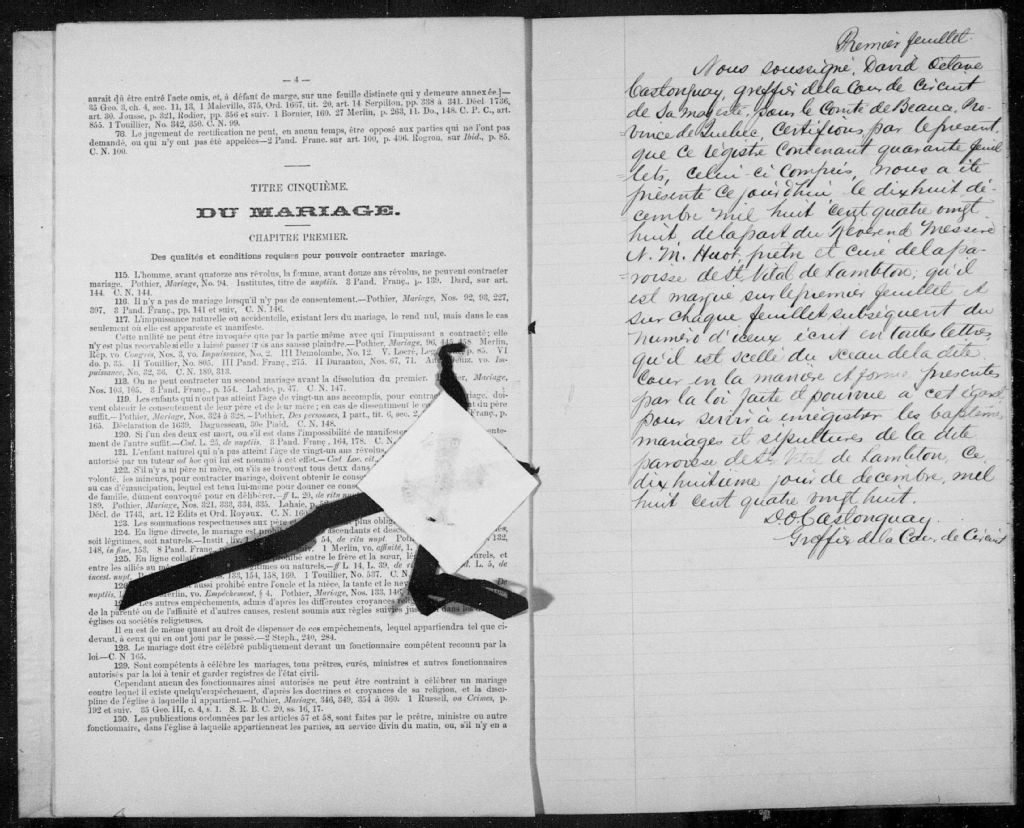 — 4 —
aurait dû être entré l'acte omis, et, à défaut de marge, sur une feuille distincte qui y demeure annexée.]—
35 Geo. 3, ch. 4, sec. 11, 13, 1 Maleville, 375, Ord. 1667, tit. 20, art. 14 Serpillon, pp. 338 à 341. Décl. 1736,
art. 30. Jousse, p. 321, Rodier, pp. 356 et suiv. 1 Bornier, 169. 27 Merlin, p. 263, 11. Do., 148. C. P. C., art.
855. 1 Touillier, No. 342, 350. C. N. 99.
76. Le jugement de rectification ne peut, en aucun temps, être opposé aux parties qui ne l'ont pas
demandé, ou qui n'y ont pas été appelées—2 Pand. Franc. sur art. 100, p. 406. Rogron, sur Ibid., p. 85.
C. N. 100.
TITRE CINQUIÈME.
DU MARIAGE.
CHAPITRE PREMIER.
Des qualités et conditions requises pour pouvoir contracter mariage.
115. L'homme, avant quatorze ans révolus, la femme, avant douze ans révolus, ne peuvent contracter
mariage. Pothier, Mariage, No. 94. Institutes, titre de nuptiis. 3 Pand. Franç., p. 139. Dard, sur art.
144. C. N. 144.
116. Il n'y a pas de mariage lorsqu'il n'y pas de consentement.—Pothier, Mariage, Nos. 92, 93, 227,
307. 3 Pand. Franç., pp. 141 et suiv, C. N. 146.
117. L'impuissance naturelle ou accidentelle, existant lors du mariage, le rend nul, mais dans le cas
seulement où elle est apparente et manifeste.
Cette nullité ne peut être invoquée que par la partie même avec qui l'impuissant a contracté; elle
n'y est plus recevable si elle a laissé passer trois ans sans se plaindre.—Pothier, Mariage, 96, 445, 458. Merlin,
Rép. vo Congrès, Nos. 3, vo. Impuissance, No. 2. III Demolombe, No. 12. V. Locré, Leg. p. 85. VI
do. p. 35. II Touillier, No. 805. III Pand. Franç., 275. II Duranton, Nos. 67, 71. vo. Im-
puissance, No. 32, 36. C. N. 180, 313.
118. On ne peut contracter un second mariage avant la dissolution du premier. Mariage,
Nos. 103, 105. 3 Pand. Franç., p. 154. Lahaie, p. 47. C. N. 147.
119. Les enfants qui n'ont pas atteint l'âge de vingt-un ans accomplis, pour contracter mariage, doi-
vent obtenir le consentement de leur père et de leur mère; en cas de dissentiment le du père
suffit.—Pothier, Mariage, Nos. 324 à 328.—Pothier, Des personnes, 1 part., tit. 6, sec. 2, Franç., p.
165. Déclaration de 1639. Daguesseau, 30e Plaid. C. N. 148.
120. Si l'un des deux est mort, ou s'il est dans l'impossibilité de manifester
ment de l'autre suffit.—Cod. L. 25, de nuptiis. 3 Pand. Franç., 164, 178. C. N.
121. L'enfant naturel qui n'a pas atteint l'âge de vingt-un ans révolus,
autorisé par un tuteur ad hoc qui lui est nommé à cet effet.—Cod. Loc. cit.,
122. S'il n'y a ni père ni mère, ou s'ils se trouvent tous deux dans
volonté, les mineurs, pour contracter mariage, doivent obtenir le conse
au cas d'émancipation, lequel est tenu lui-même pour donner ce conse
de famille, dûment convoqué pour en délibérer.—ff L. 20, de ritu nup
189. Pothier, Mariage, Nos. 321, 333, 334, 335. Lahaie, p.
Décl. de 1743, art. 12 Edits et Ord. Royaux. C. N. 160
123. Les sommations respectueuses aux père et plus oblig
124. En ligne directe, le mariage est prohi scendants et desce
soit légitimes, soit naturels.—Instit., liv. 1, 54, de ritu nupt. Poth 132,
148, in fine, 153. 3 Pand. Franç., 1 Merlin, vo. affinité, 1,
125. En ligne collaté bé entre le frère et la sœur, lé urels, et
entre les alliés au mê times ou naturels.—ff L. 14, L. 39, de rit L. 5, de
incest. nupt. 133, 154, 158, 160. 1 Touillier, No. 537. C. N.
126. aussi prohibé entre l'oncle et la nièce, la tante et le nev
nuptiis, L. Merlin, vo. Empêchement, § 4. Pothier, Mariage, Nos. 133, 146,
Les autres empêchements, admis d'après les différentes croyances relig
de la parenté ou de l'affinité et d'autres causes, restent soumis aux règles suivies jus dans les
églises ou sociétés religieuses.
Il en est de même quant au droit de dispenser de ces empêchements, lequel appartiendra tel que ci-
devant, à ceux qui en ont joui par le passé.—2 Steph., 240, 284.
128. Le mariage doit être célébré publiquement devant un fonctionnaire compétent reconnu par la
loi.—C. N. 165.
129. Sont compétents à célébre les mariages, tous prêtres, curés, ministres et autres fonctionnaires
autorisés par la loi à tenir et garder registres de l'état civil.
Cependant aucun des fonctionnaires ainsi autorisés ne peut être contraint à célébrer un mariage
contre lequel il existe quelqu'empêchement, d'après les doctrines et croyances de sa religion, et la disci-
pline de l'église à laquelle il appartient.—Pothier, Mariage, 346, 349, 354 à 360. 1 Russell, on Crimes, p.
192 et suiv. 35 Geo. III, c. 4, s. 1. S. R. B. C. 20, ss. 16, 17.
130. Les publications ordonnées par les articles 57 et 58, sont faites par le prêtre, ministre ou autre
fonctionnaire, dans l'église à laquelle appartiennent les parties, au service divin du matin, ou, s'il n'y en a
Premier feuillet.
Nous soussigné, David Octave
Castonguay, greffier de la Cour de Circuit
de Sa majesté, pour le Comté de Beauce, Pro-
vince de Québec, Certifions par le présent,
que ce régistre contenant quarante feuil-
lets, celui-ci compris, nous a été
présenté ce jourd'hui le dixhuit dé-
cembre mil huit cent quatre vingt
huit de la part du Révérend Messire
N. M. Huot, prêtre et curé de la pa-
roisse de St. Vital de Lambton; qu'il
est marqué sur le premier feuillet et
sur chaque feuillet subséquent du
numéro d'iceux écrit en toutes lettres,
qu'il est scellé du sceau de la dite
Cour en la manière et forme présentes
par la loi faite et pourvue à cet égard
pour servir à enrégistrer les baptêmes,
mariages et sépultures de la dite
paroisse de St. Vital de Lambton, ce
dixhuitième jour de décembre, mil
huit cent quatre vingt huit.
D. O. Castonguay
Greffier de la Cour de Circuit